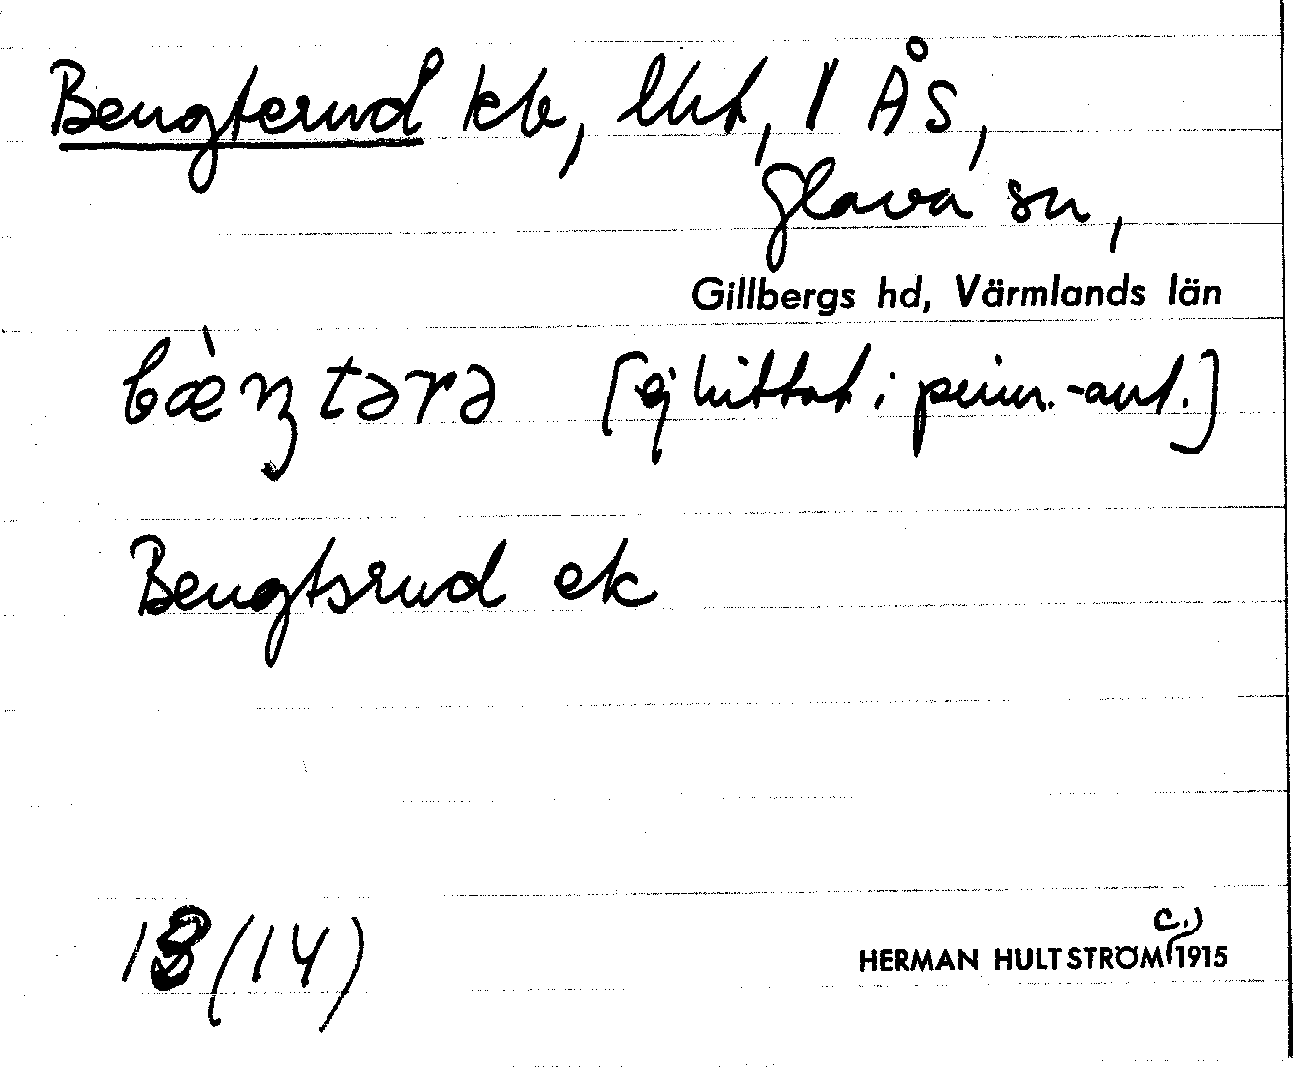 Bengterud kb, lht, 1 ÅS,
Glava sn,
Gillbergs hd, Värmlands län
bæ̀ŋtərə [ej hittat i prim.-ant.]
Bengtsrud ek
18 (14)
c.)
HERMAN HULTSTRÖM 1915